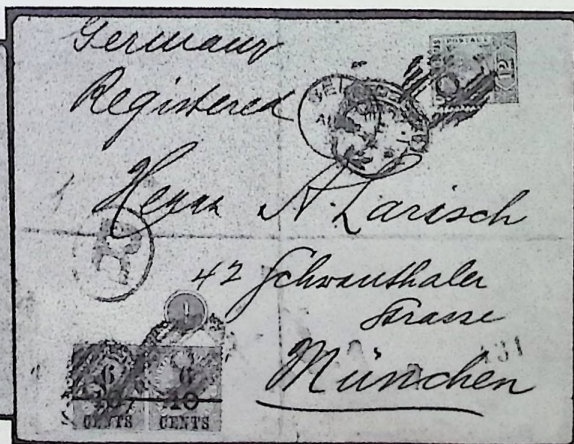 Germany
Registered
Herrn A. Larisch
42 Schwanthaler
Strasse
München
R
6 6
10 10
CENTS CENTS